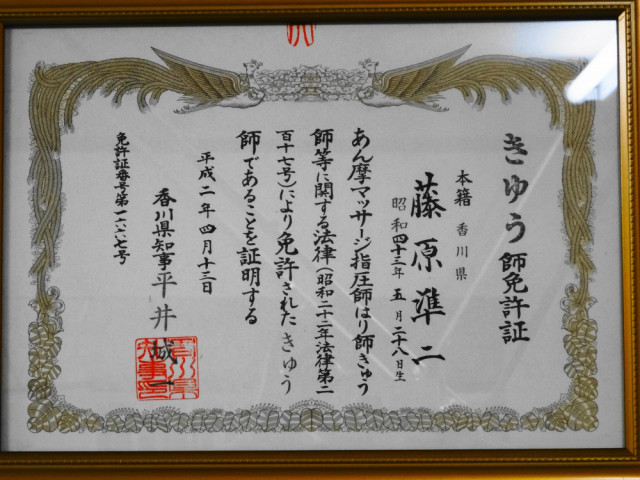 きゆう師免許証
本籍 香川県
藤原準二
昭和四十三年 五月二十八日生
あん摩マッサージ指圧師はり師きゅう
師等に関する法律(昭和二十二年法律第二
百十七号)により免許されたきゅう
師であることを証明する
平成二年四月十三日
香川県知事 平井城一
免許証番号第一六六七号